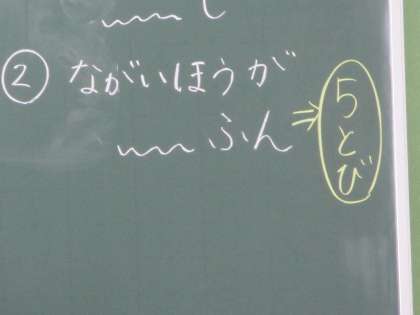 〰〰じ
② ながいほうが
〰〰ふん
⇒ 5とび